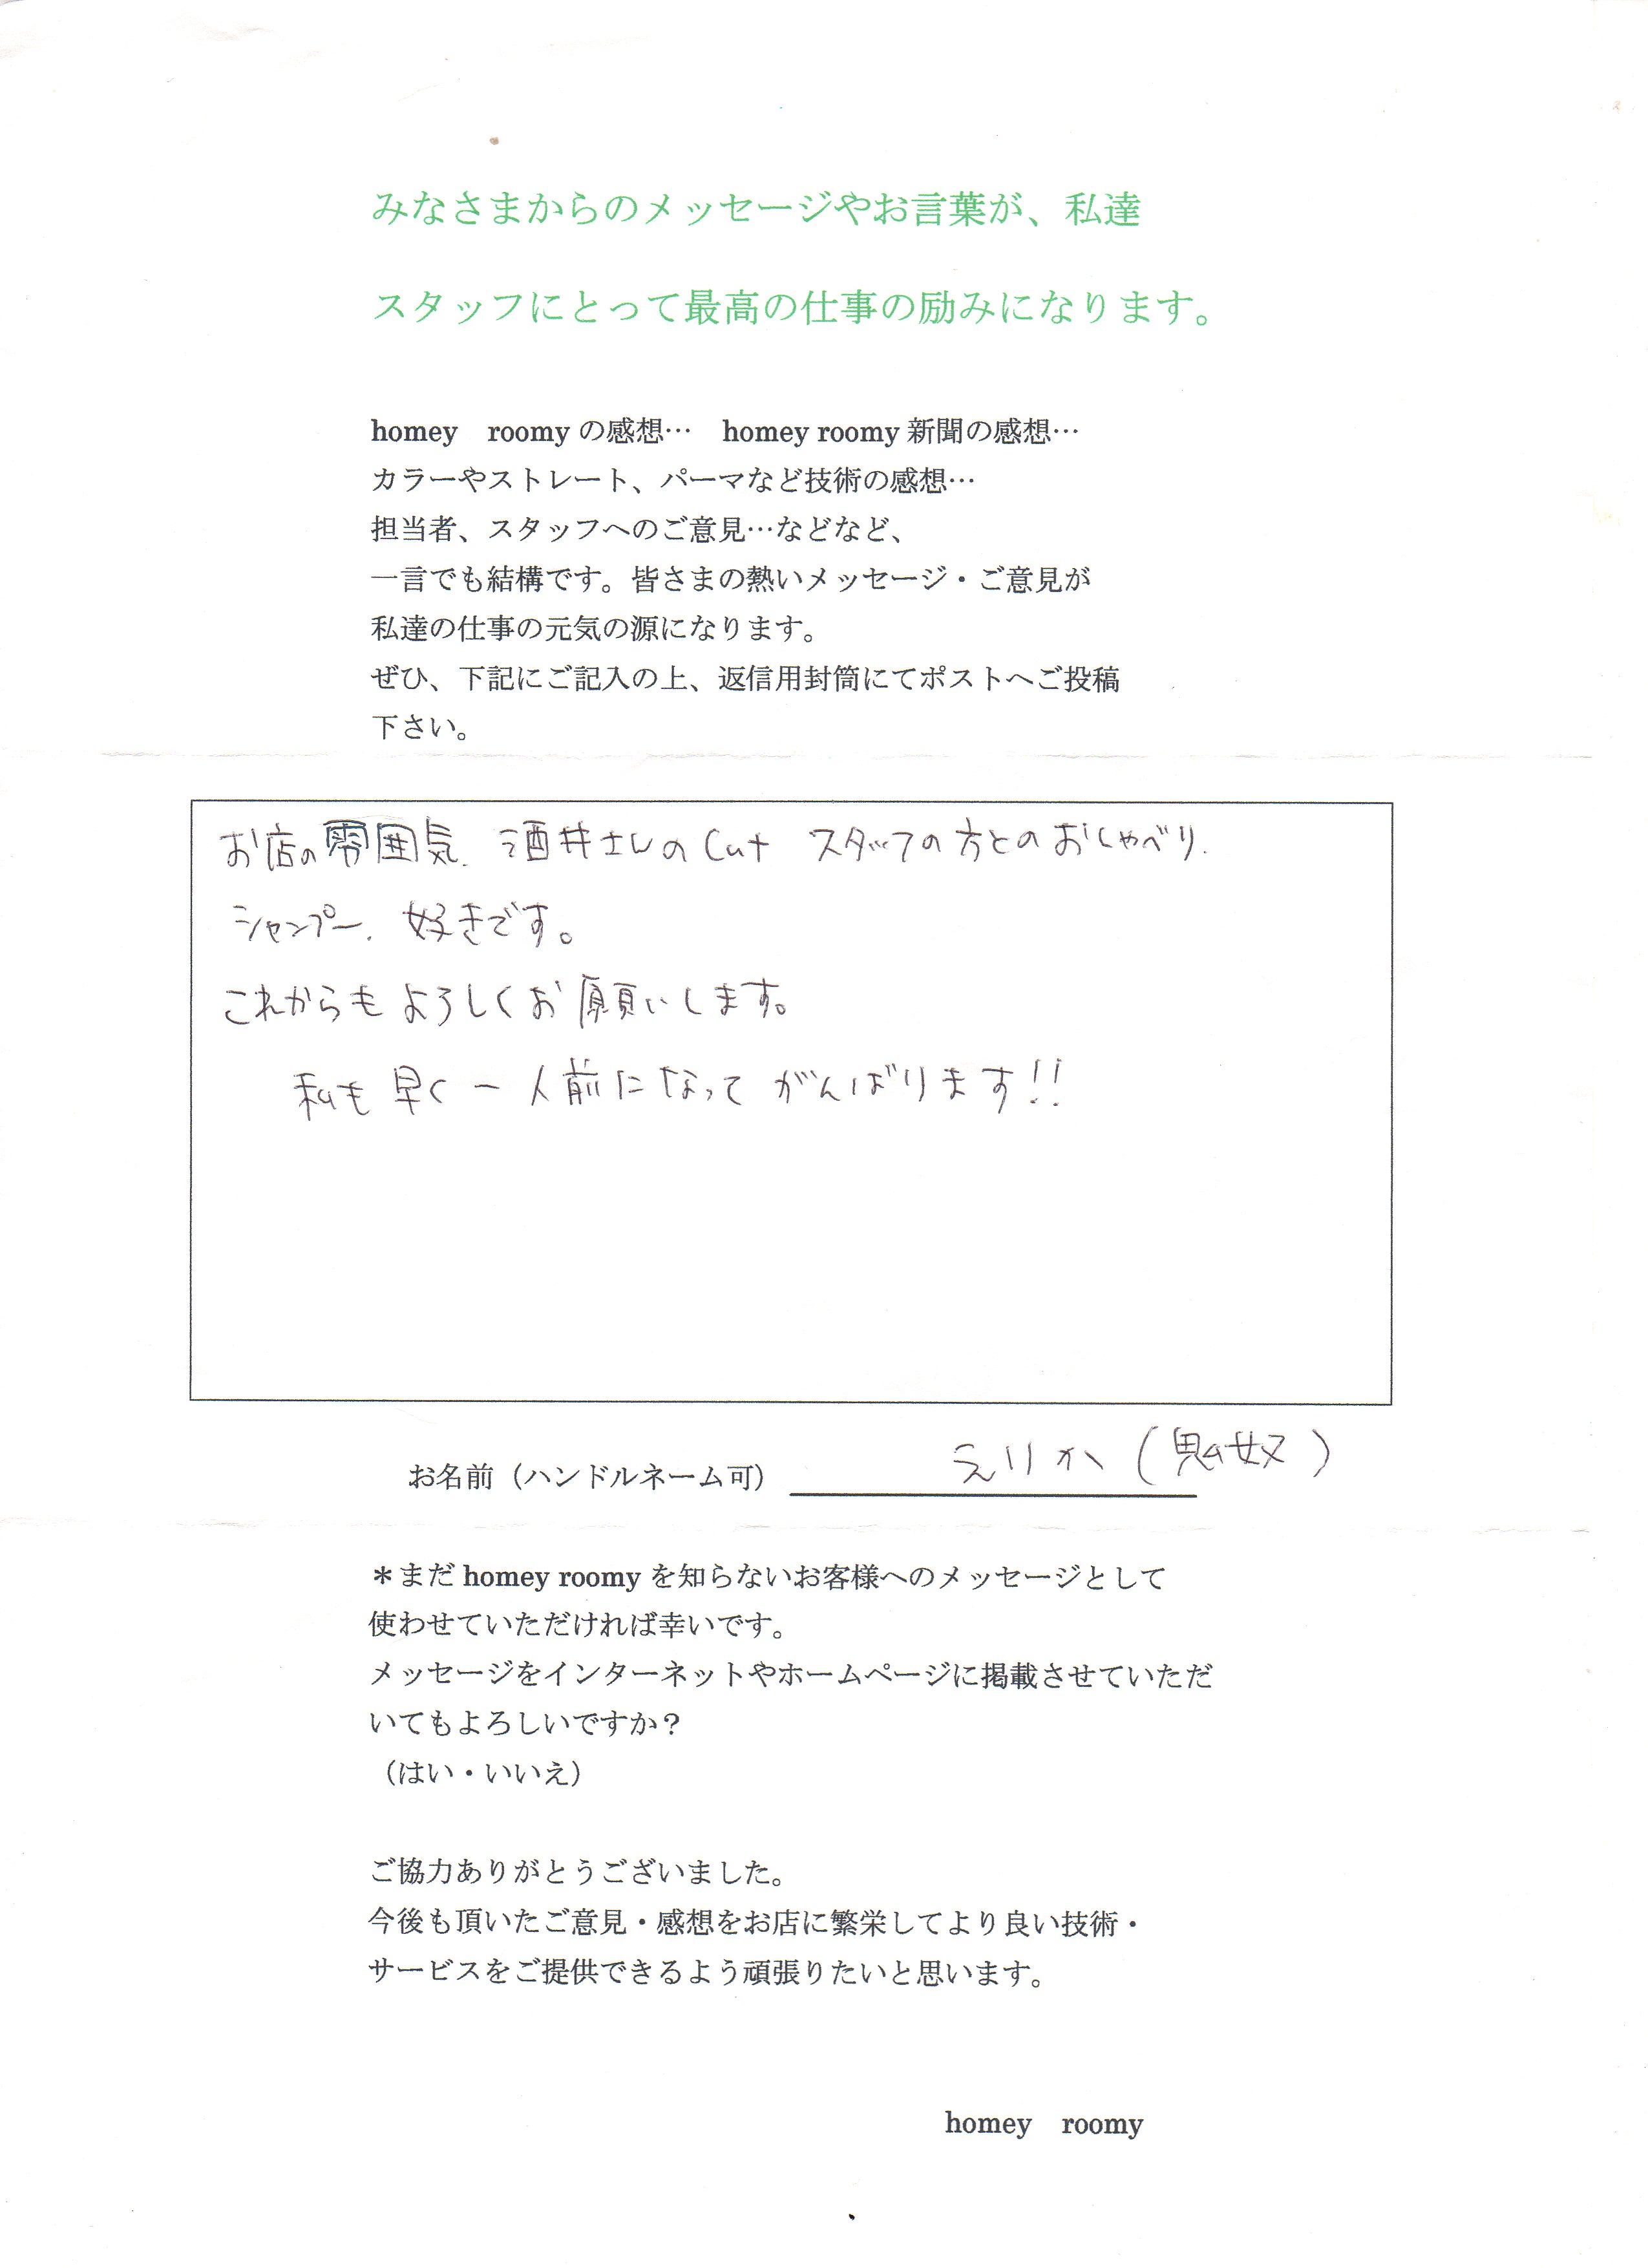 みなさまからのメッセージやお言葉が、私達
スタッフにとって最高の仕事の励みになります。
homey　roomy の感想…　homey roomy 新聞の感想…
カラーやストレート、パーマなど技術の感想…
担当者、スタッフへのご意見…などなど、
一言でも結構です。皆さまの熱いメッセージ・ご意見が
私達の仕事の元気の源になります。
ぜひ、下記にご記入の上、返信用封筒にてポストへご投稿
下さい。
お店の雰囲気、酒井さんのCut スタッフの方とのおしゃべり、
シャンプー、好きです。
これからもよろしくお願いします。
私も早く一人前になってがんばります!!
お名前（ハンドルネーム可） えりか（鬼奴）
＊まだ homey roomy を知らないお客様へのメッセージとして
使わせていただければ幸いです。
メッセージをインターネットやホームページに掲載させていただ
いてもよろしいですか？
（はい・いいえ）
ご協力ありがとうございました。
今後も頂いたご意見・感想をお店に繁栄してより良い技術・
サービスをご提供できるよう頑張りたいと思います。
homey　roomy